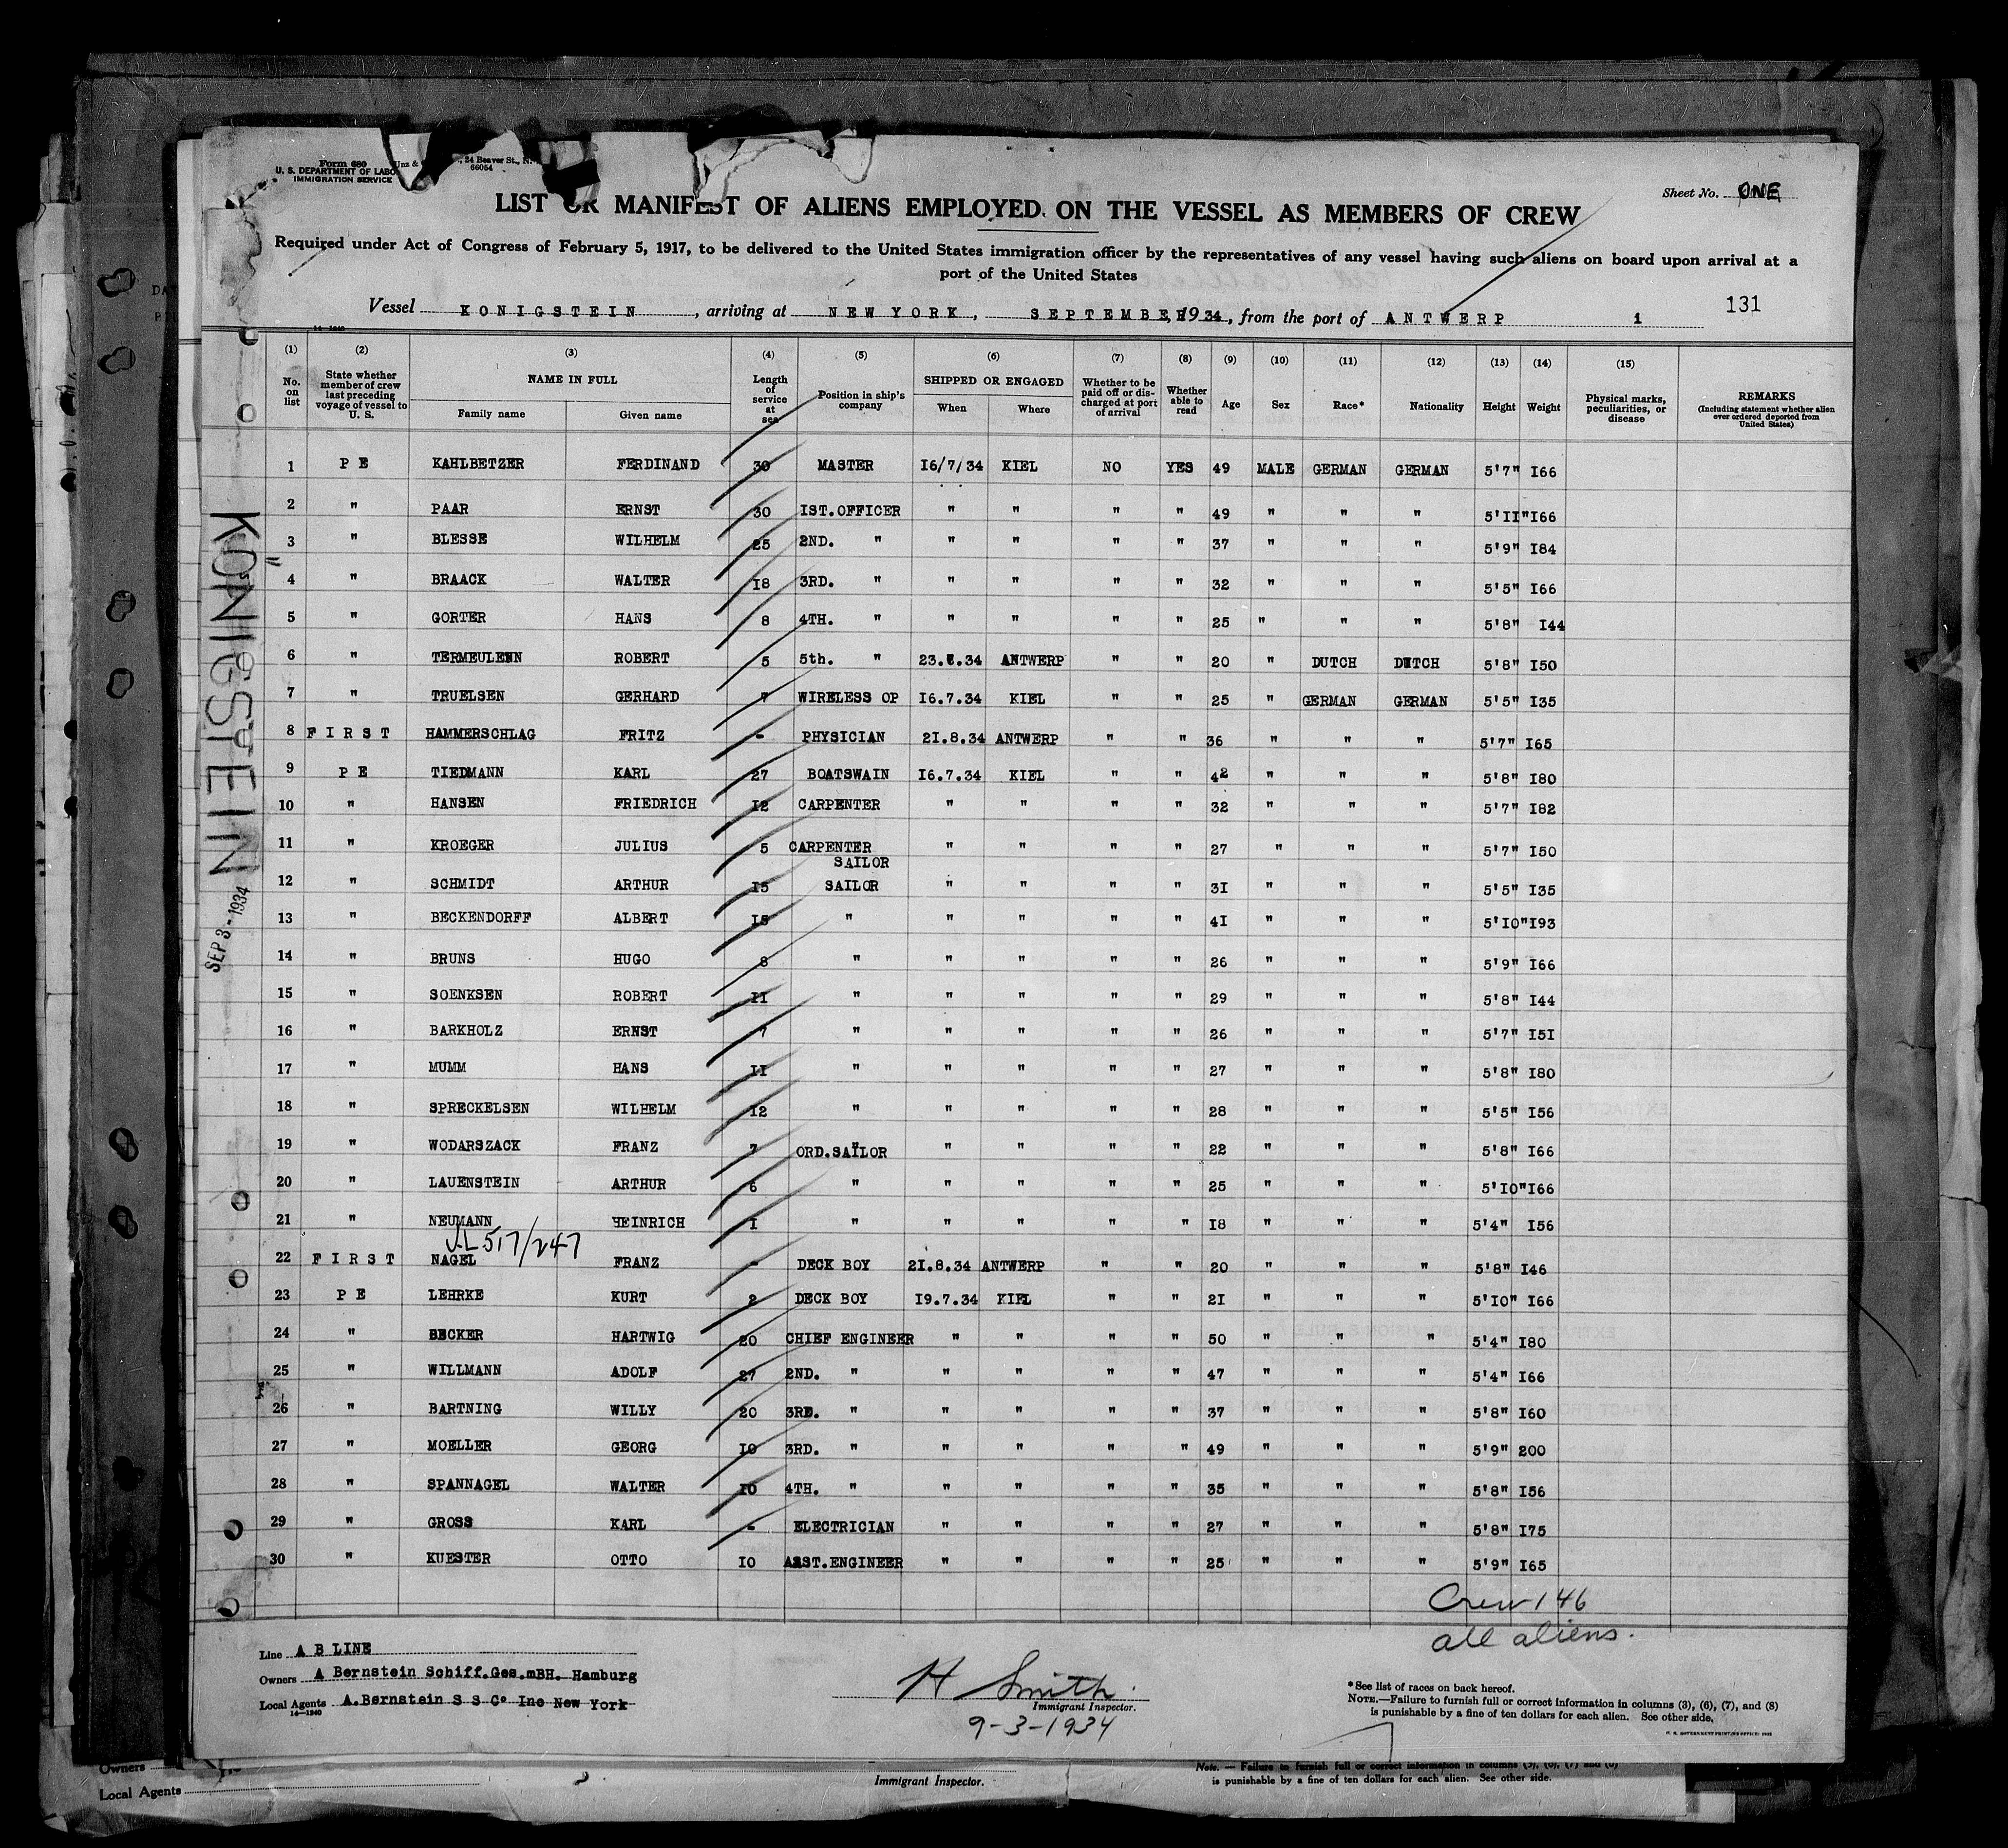 Form 680
U. S. DEPARTMENT OF LABO
IMMIGRATION SERVICE
Unz &
, 24 Beaver St., N.
66054
Sheet No. ONE
LIST OR MANIFEST OF ALIENS EMPLOYED ON THE VESSEL AS MEMBERS OF CREW
Required under Act of Congress of February 5, 1917, to be delivered to the United States immigration officer by the representatives of any vessel having such aliens on board upon arrival at a
port of the United States
Vessel KONIGSTEIN, arriving at NEW YORK, SEPTEMBER, 1934, from the port of ANTWERP 1 131
14-1240
(1) (2) (3) (4) (5) (6) (7) (8) (9) (10) (11) (12) (13) (14) (15)
No. on list | State whether member of crew last preceding voyage of vessel to U. S. | NAME IN FULL Family name Given name | Length of service at sea | Position in ship's company | SHIPPED OR ENGAGED When Where | Whether to be paid off or discharged at port of arrival | Whether able to read | Age | Sex | Race* | Nationality | Height | Weight | Physical marks, peculiarities, or disease | REMARKS (Including statement whether alien ever ordered deported from United States)
1 P E KAHLBETZER FERDINAND 30 MASTER 16/7/34 KIEL NO YES 49 MALE GERMAN GERMAN 5'7" I66
2 " PAAR ERNST 30 IST.OFFICER " " " " 49 " " " 5'II" I66
3 " BLESSE WILHELM 25 2ND. " " " " " 37 " " " 5'9" I84
4 " BRAACK WALTER I8 3RD. " " " " " 32 " " " 5'5" I66
5 " GORTER HANS 8 4TH. " " " " " 25 " " " 5'8" I44
6 " TERMEULENN ROBERT 5 5th. " 23.8.34 ANTWERP " " 20 " DUTCH DUTCH 5'8" I50
7 " TRUELSEN GERHARD 7 WIRELESS OP I6.7.34 KIEL " " 25 " GERMAN GERMAN 5'5" I35
8 FIRST HAMMERSCHLAG FRITZ - PHYSICIAN 2I.8.34 ANTWERP " " 36 " " " 5'7" I65
9 P E TIEDMANN KARL 27 BOATSWAIN I6.7.34 KIEL " " 42 " " " 5'8" I80
10 " HANSEN FRIEDRICH I2 CARPENTER " " " " 32 " " " 5'7" I82
11 " KROEGER JULIUS 5 CARPENTER SAILOR " " " " 27 " " " 5'7" I50
12 " SCHMIDT ARTHUR I5 SAILOR " " " " 3I " " " 5'5" I35
13 " BECKENDORFF ALBERT I5 " " " " " 4I " " " 5'I0" I93
14 " BRUNS HUGO 8 " " " " " 26 " " " 5'9" I66
15 " SOENKSEN ROBERT II " " " " " 29 " " " 5'8" I44
16 " BARKHOLZ ERNST 7 " " " " " 26 " " " 5'7" I5I
17 " MUMM HANS II " " " " " 27 " " " 5'8" I80
18 " SPRECKELSEN WILHELM I2 " " " " " 28 " " " 5'5" I56
19 " WODARSZACK FRANZ 7 ORD.SAILOR " " " " 22 " " " 5'8" I66
20 " LAUENSTEIN ARTHUR 6 " " " " " 25 " " " 5'I0" I66
21 " NEUMANN HEINRICH I " " " " " I8 " " " 5'4" I56
517/247
22 FIRST NAGEL FRANZ - DECK BOY 2I.8.34 ANTWERP " " 20 " " " 5'8" I46
23 P E LEHRKE KURT 2 DECK BOY I9.7.34 KIEL " " 2I " " " 5'I0" I66
24 " BECKER HARTWIG 20 CHIEF ENGINEER " " " " 50 " " " 5'4" I80
25 " WILLMANN ADOLF 27 2ND. " " " " " 47 " " " 5'4" I66
26 " BARTNING WILLY 20 3RD. " " " " " 37 " " " 5'8" I60
27 " MOELLER GEORG I0 3RD. " " " " " 49 " " " 5'9" 200
28 " SPANNAGEL WALTER I0 4TH. " " " " " 35 " " " 5'8" I56
29 " GROSS KARL - ELECTRICIAN " " " " 27 " " " 5'8" I75
30 " KUESTER OTTO I0 ASST.ENGINEER " " " " 25 " " " 5'9" I65
KÖNIGSTEIN
SEP 3 - 1934
Crew 146
all aliens.
Line A B LINE
Owners A Bernstein Schiff.Ges.mBH. Hamburg
Local Agents A.Bernstein S S Co Inc New York
14-1240
H Smith
Immigrant Inspector.
9-3-1934
*See list of races on back hereof.
NOTE.—Failure to furnish full or correct information in columns (3), (6), (7), and (8)
is punishable by a fine of ten dollars for each alien. See other side.
Owners
Local Agents
Immigrant Inspector.
Note. — Failure to furnish full or correct information in columns (3), (6), (7) and (8)
is punishable by a fine of ten dollars for each alien. See other side.